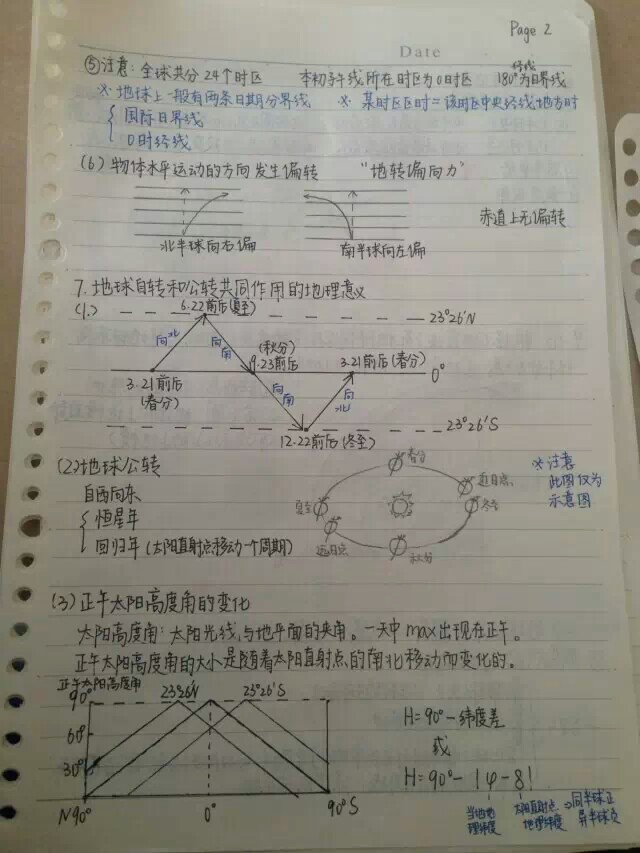 Page 2
Date
⑤注意:全球共分24个时区 本初子午线所在时区为0时区 180°经线为日界线
※地球上一般有两条日期分界线 ※某时区区时=该时区中央经线地方时
国际日界线
0时经线
(6)物体水平运动的方向发生偏转 "地转偏向力"
北半球向右偏 南半球向左偏 赤道上无偏转
7.地球自转和公转共同作用的地理意义
(1.) 6.22前后(夏至) 23°26′N
向北 向南 (秋分) 9.23前后 3.21前后(春分) 0°
3.21前后(春分) 向南 向北
12.22前后(冬至) 23°26′S
(2)地球公转 春分 近日点 ※注意
自西向东 此图仅为
恒星年 夏至 冬至 示意图
回归年(太阳直射点移动一个周期) 远日点 秋分
(3)正午太阳高度角的变化
太阳高度角:太阳光线与地平面的夹角。一天中max出现在正午。
正午太阳高度角的大小是随着太阳直射点的南北移动而变化的。
正午太阳高度角
90° 23°26′N 23°26′S H=90°-纬度差
60° 或
30° H=90°-|φ-δ|
N90° 0° 90°S 当地地理纬度 太阳直射地地理纬度 ⇒同半球正异半球负